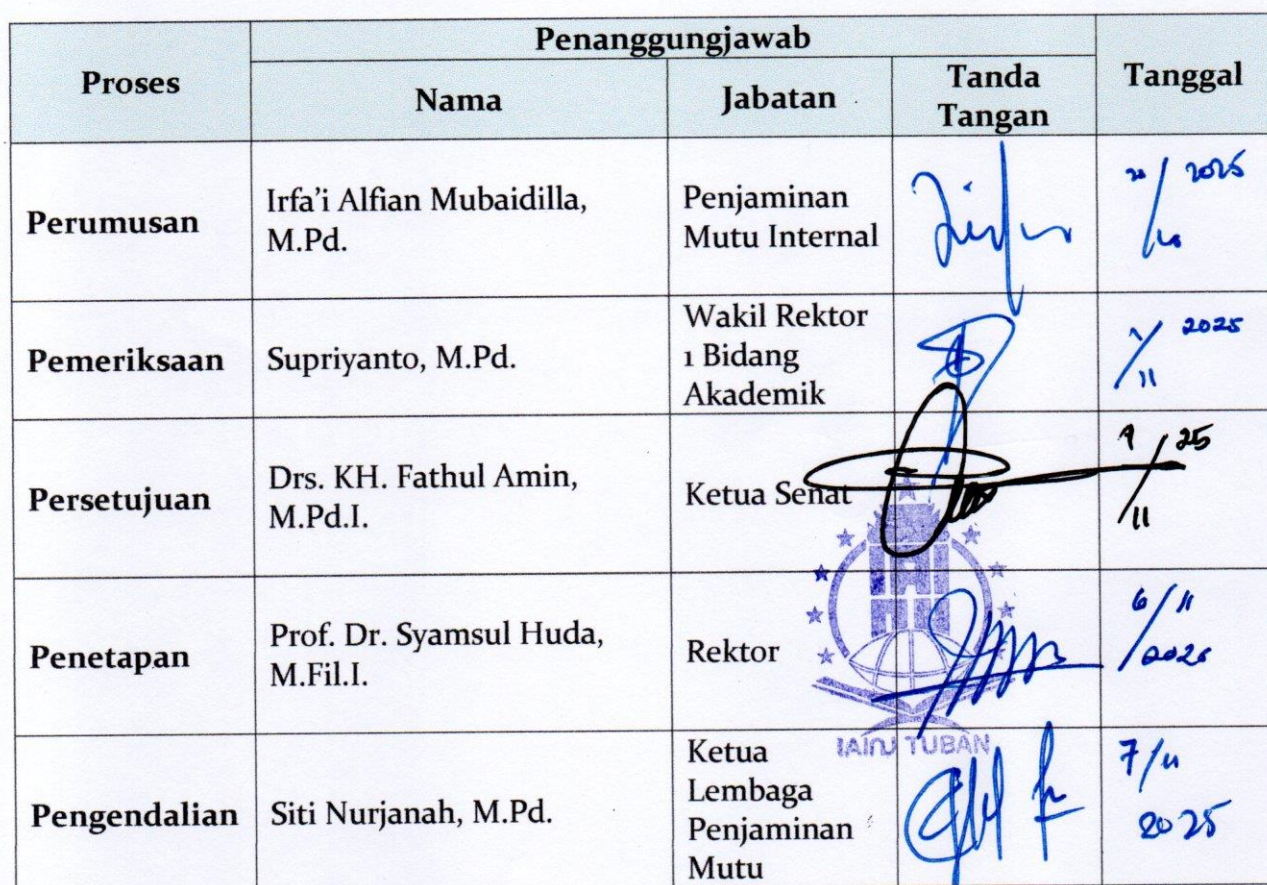 Proses
Penanggungjawab
Tanggal
Nama
Jabatan
Tanda
Tangan
Perumusan
Irfa'i Alfian Mubaidilla,
M.Pd.
Penjaminan
Mutu Internal
2025
Pemeriksaan
Supriyanto, M.Pd.
Wakil Rektor
1 Bidang
Akademik
2025
/11
Persetujuan
Drs. KH. Fathul Amin,
M.Pd.I.
Ketua Senat
/25
/11
Penetapan
Prof. Dr. Syamsul Huda,
M.Fil.I.
Rektor
6/11
/2025
IAINU TUBAN
Pengendalian
Siti Nurjanah, M.Pd.
Ketua
Lembaga
Penjaminan
Mutu
7/11
2025